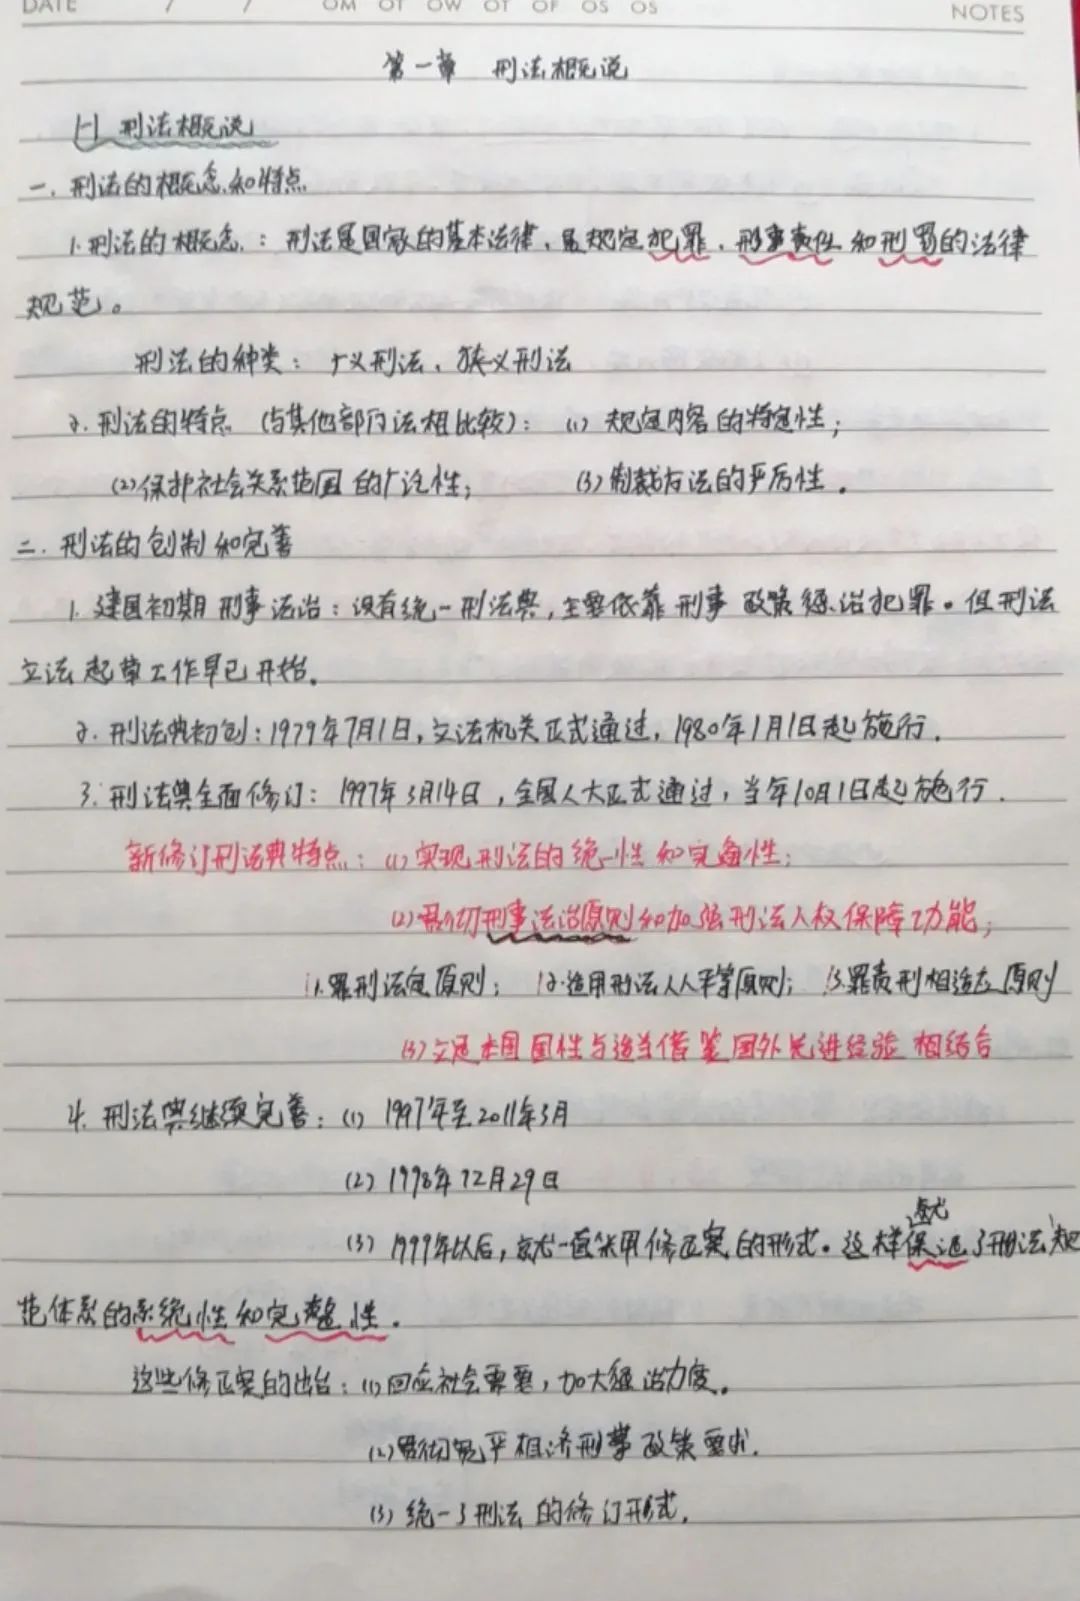 DATE / / OM OT OW OT OF OS OS NOTES
第一章 刑法概说
(一) 刑法概说
一. 刑法的概念和特点
1. 刑法的概念: 刑法是国家的基本法律、是规定犯罪、刑事责任和刑罚的法律
规范。
刑法的种类: 广义刑法、狭义刑法
2. 刑法的特点 (与其他部门法相比较): (1) 规定内容的特定性;
(2) 保护社会关系范围的广泛性; (3) 制裁方法的严厉性.
二. 刑法的创制和完善
1. 建国初期刑事法治: 没有统一刑法典, 主要依靠刑事政策惩治犯罪。但刑法
立法起草工作早已开始.
2. 刑法典初创: 1979年7月1日, 立法机关正式通过, 1980年1月1日起施行.
3. 刑法典全面修订: 1997年3月14日, 全国人大正式通过, 当年10月1日起施行.
新修订刑法典特点: (1) 实现刑法的统一性和完备性;
(2) 贯彻刑事法治原则和加强刑法人权保障功能;
1. 罪刑法定原则; 2. 适用刑法人人平等原则; 3. 罪责刑相适应原则
(3) 立足本国国性与适当借鉴国外先进经验相结合
4. 刑法典继续完善: (1) 1997年至2011年3月
(2) 1998年12月29日
(3) 1999年以后, 就一直采用修正案的形式。这样就保证了刑法规
范体系的系统性和完整性.
这些修正案的出台: (1) 回应社会需要, 加大惩治力度.
(2) 贯彻宽严相济刑事政策要求.
(3) 统一了刑法的修订形式.